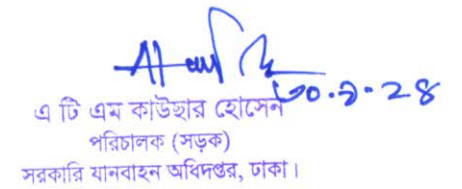 ৩০.৯.২৪
এ টি এম কাউছার হোসেন
পরিচালক (সড়ক)
সরকারি যানবাহন অধিদপ্তর, ঢাকা।